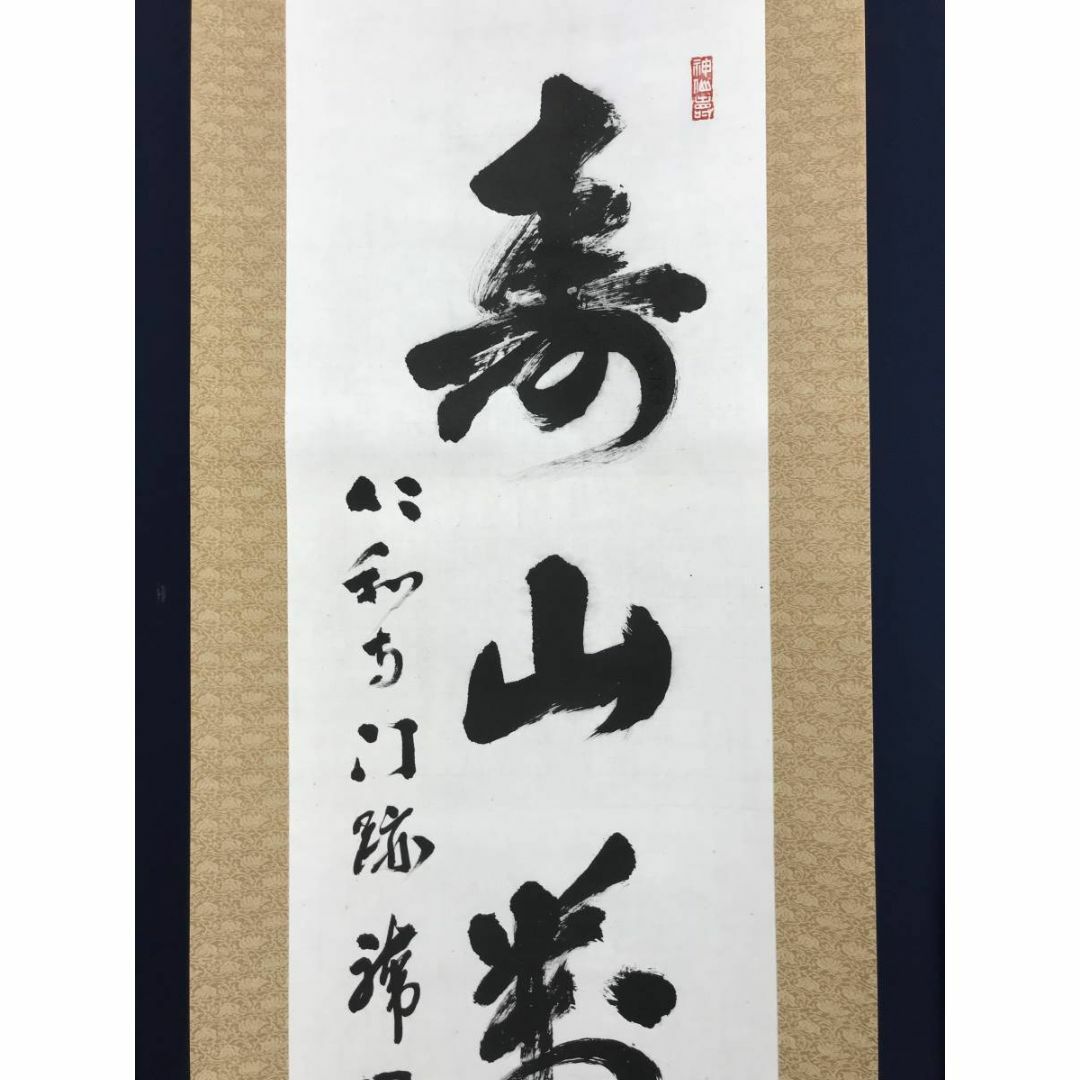 神仙壽
寿山萬
仁和寺門跡